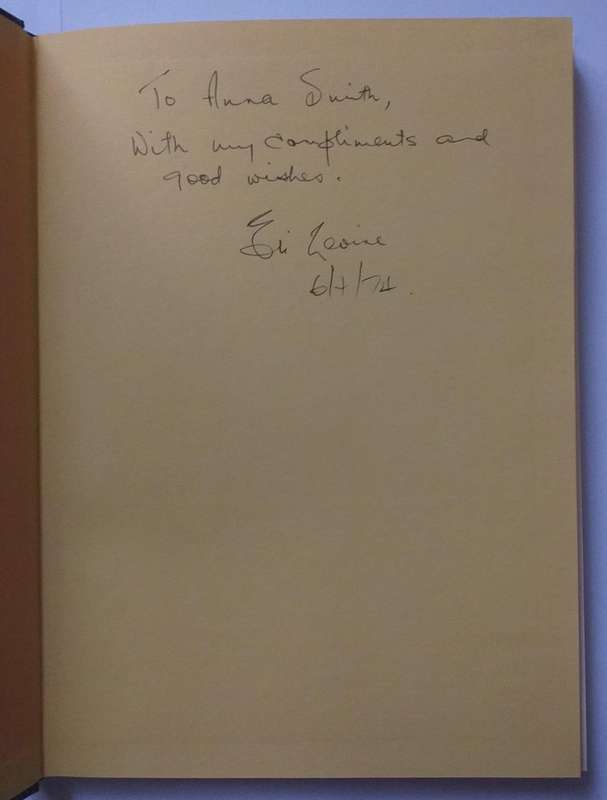 To Anna Smith,
With my compliments and
good wishes.
Eli Levine
6/1/74.